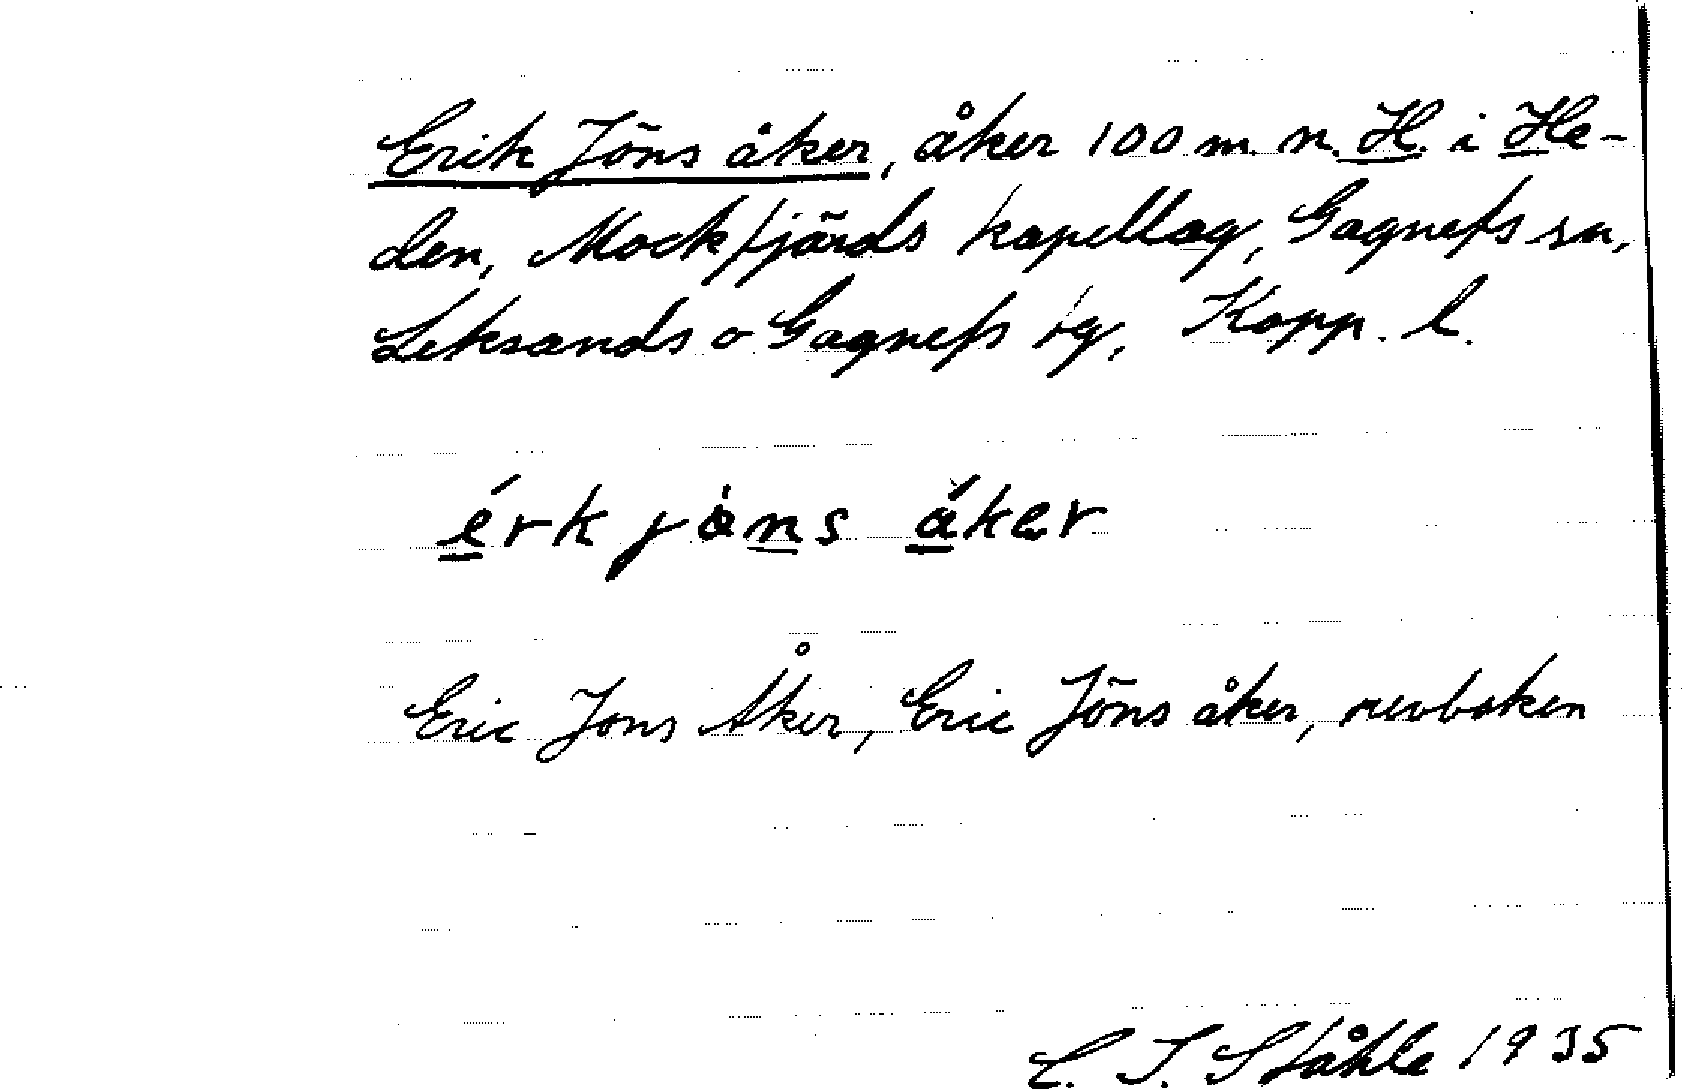 Erik Jöns åker, åker 100 m. n. H. i He-
den, Mockfjärds kapellag, Gagnefs sn,
Leksands o Gagnefs tg, Kopp. l.
érk jòns åker
Eric Jons Åker, Eric Jöns åker, revboken
C. I. Ståhle 1935